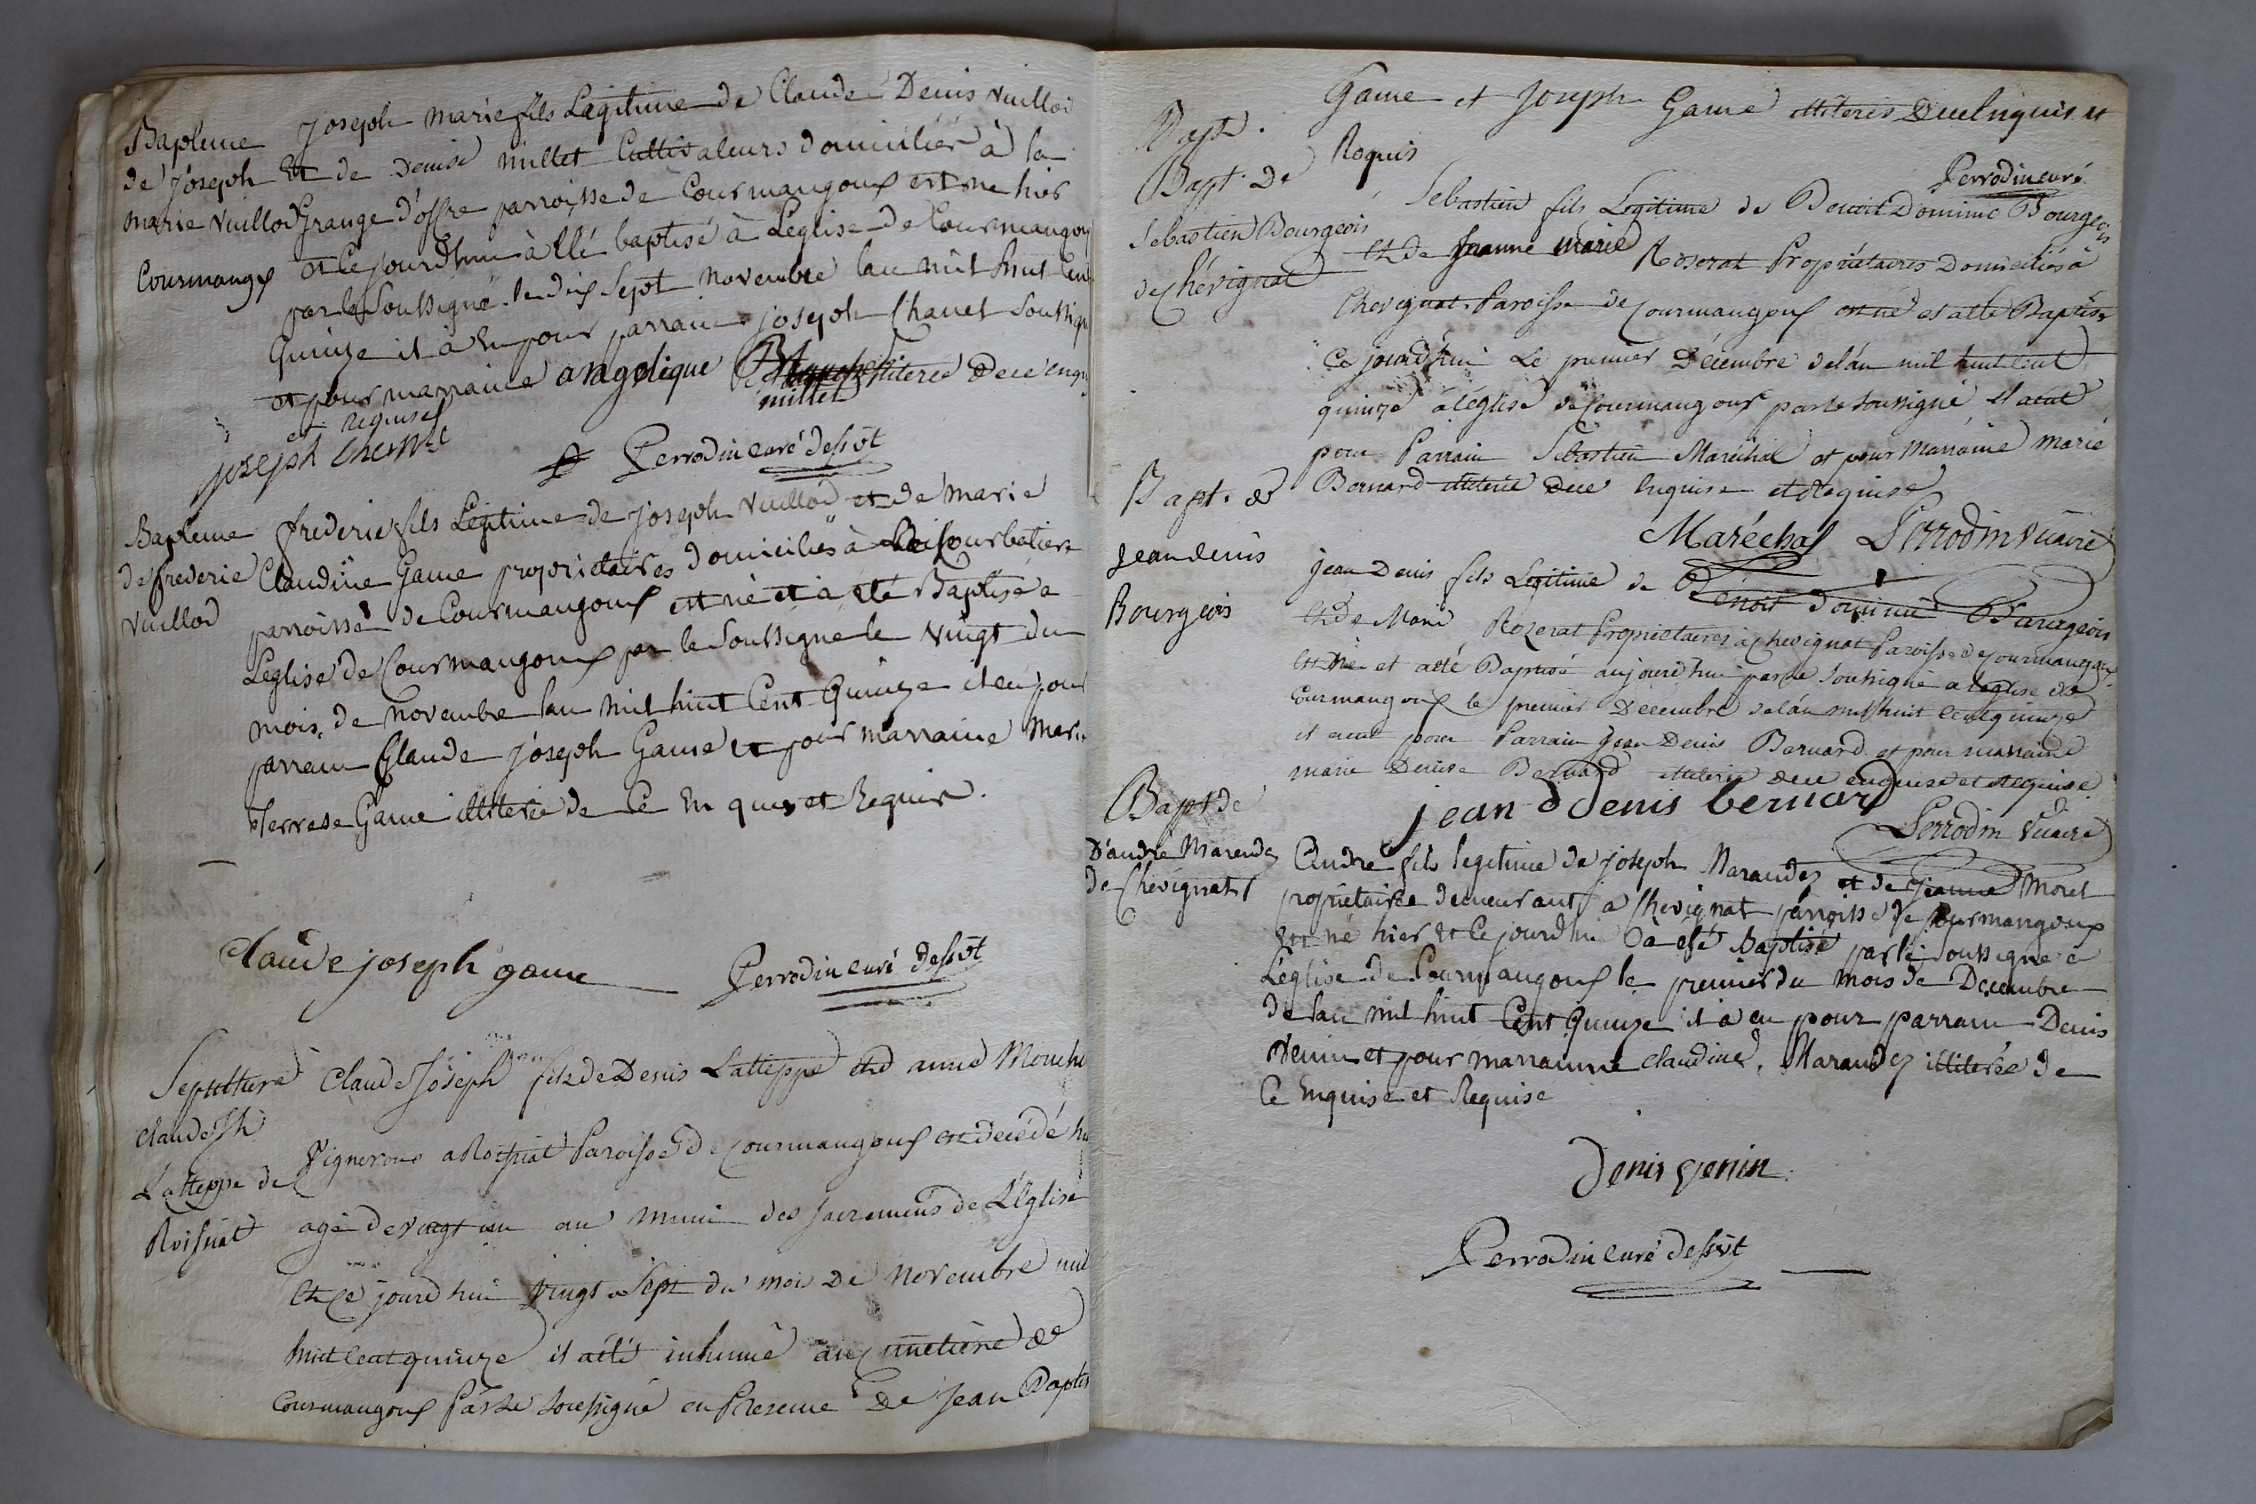 Bapteme
de joseph
marie vuillod
Courmangoux
joseph marie fils Legitime de Claude Denis vuillod
Et de Denise millet Cultivateurs domiciliés à la
Grange d'offre parroisse de Courmangoux est né hier
et Ce jourdhui à Eté baptisé à Leglise de Courmangoux
par le Soussigné le dix Sept novembre lan mil huit Cent
Quinze il à Eu pour parrain joseph Chanel Soussigné
et pour marraine angelique
millet illiterée de ce enquise
et Requise
joseph
Perrodin curé dessst
Bapteme
de frederic
vuillod
frederic fils Legitime de joseph vuillod et de marie
Claudine Game proprietaires domiciliés à
parroisse de Courmangoux est né et à eté Baptisé a
Leglise de Courmangoux par le Soussigné le vingt du
mois de novembre lan mil huit Cent Quinze il eu pour
parrain Claude joseph Game et pour marraine marie
Terrese Game illiterée de Ce En quise et Requise.
Claude joseph game
Perrodin curé dessst
Sepulture
claude Jh
Latteppe de
Roissiat
Claude Joseph fils de Denis Latteppe et d anne
Vignerons a Roissiat Paroisse de Courmangoux est decédé hier
agé de vingt un an muni des sacremens de L'Eglise
Et Ce jourd hui vingt Sept du mois de Novembre mil
huit cent quinze il a été inhumé au cimetière de
Courmangoux Par Le soussigné en Presence De Jean Baptiste
Game et Joseph Game illiterés De ce Enquis et
Bapt.
Requis
Perrodin curé
Bapt. de
Sebastien Bourgeois
de Chevignat
Sebastien fils Legitime de Benoit Dominic Bourgeois
Et de Jeanne marie Roserat Propriétaires Domiciliés à
Chevignat Paroisse de Courmangoux est né et a été Baptisé
Ce jourd'hui Le premier Décembre de l'an mil huit cent
quinze à l'église de Courmangoux par le soussigné il a eut
pour Parrain Sébastien Maréchal et pour Marraine Marie
Bernard illiterée De ce Enquise et Requise
Maréchal Perrodin vicaire
Bapt. de
jean denis
Bourgeois
jean Denis fils Legitime de Benoit Dominic Bourgeois
Et De Marie Rozerat Propriétaires à Chevignat Paroisse de Courmangoux
est né et a été Baptisé aujourd'hui par le soussigné a l'église de
Courmangoux le premier Décembre de l'an mil huit cent quinze
il a eut pour Parrain Jean Denis Bernard et pour marraine
Marie Denise Bernard illiterée De ce enquise et Requise.
jean denis bernard
Perrodin vicaire
Bapt de
D'andre Marandez
de Chevignat
Andre fils legitime de joseph Marandez et de jeanne Morel
proprietaires demeurant à Chevignat parroisse de Courmangoux
Est né hier et Ce jourdhui a eté Baptisé par le soussigné à
L'eglise de Courmangoux le premier du mois de Decembre
de lan mil huit Cent Quinze il a eu pour parrain Denis
venin et pour marrainne claudine Marandez illiterée de
Ce Enquise et Requise
Denis venin
Perrodin curé dessst